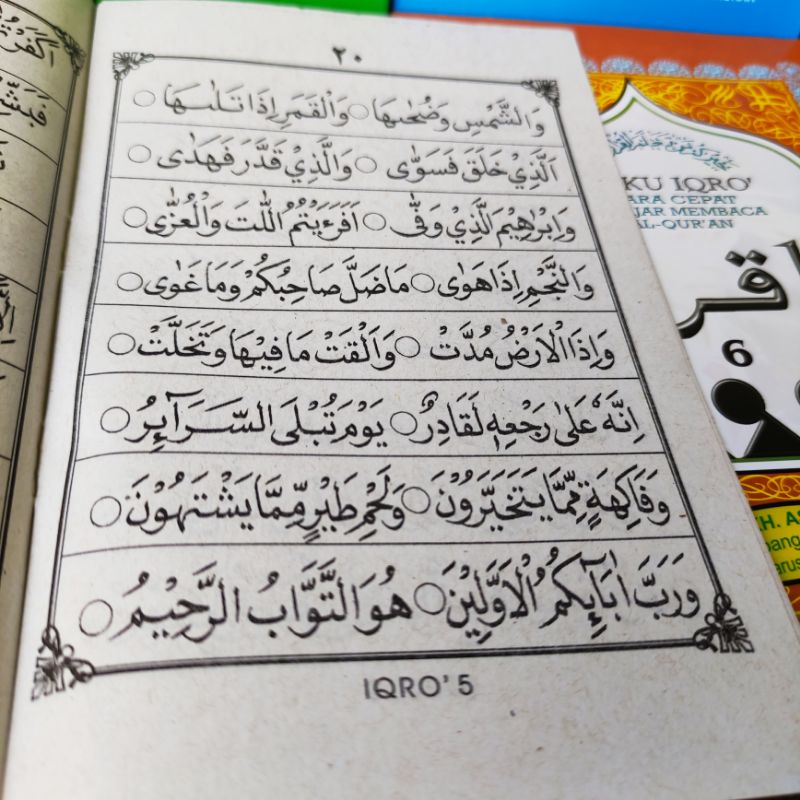 ٢٠
وَالشَّمْسِ وَضُحٰىهَا ○ وَالْقَمَرِ اِذَا تَلٰىهَا ○
اَلَّذِيْ خَلَقَ فَسَوّٰى ○ وَالَّذِيْ قَدَّرَ فَهَدٰى ○
وَاِبْرَاهِيْمَ الَّذِيْ وَفّٰى ○ اَفَرَءَيْتُمُ اللّٰتَ وَالْعُزّٰى ○
وَالنَّجْمِ اِذَا هَوٰى ○ مَا ضَلَّ صَاحِبُكُمْ وَمَا غَوٰى ○
وَاِذَا الْاَرْضُ مُدَّتْ ○ وَاَلْقَتْ مَا فِيْهَا وَتَخَلَّتْ ○
اِنَّهٗ عَلٰى رَجْعِهٖ لَقَادِرٌ ○ يَوْمَ تُبْلَى السَّرَآئِرُ ○
وَفَاكِهَةٍ مِّمَّا يَتَخَيَّرُوْنَ ○ وَلَحْمِ طَيْرٍ مِّمَّا يَشْتَهُوْنَ ○
وَرَبَّ اٰبَآئِكُمُ الْاَوَّلِيْنَ ○ هُوَ التَّوَّابُ الرَّحِيْمُ ○
IQRO' 5
KU IQRO'
ARA CEPAT
JAR MEMBACA
AL-QUR'AN
6